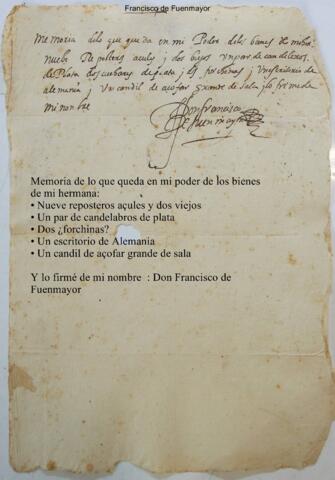 Francisco de Fuenmayor
Memoria delo que queda en mi Poder delos bienes de mi
nuebe Reposteros açules y dos biejos un par de candeleros
de Plata dos cucharas de plata y dos forchinas y un escritorio de
alemania y un candil de açofar grande de sala y lo firme de
mi nonbre
Don francisco
de fuenmayor
Memoria de lo que queda en mi poder de los bienes
de mi hermana:
• Nueve reposteros açules y dos viejos
• Un par de candelabros de plata
• Dos ¿forchinas?
• Un escritorio de Alemania
• Un candil de açofar grande de sala
Y lo firmé de mi nombre : Don Francisco de
Fuenmayor